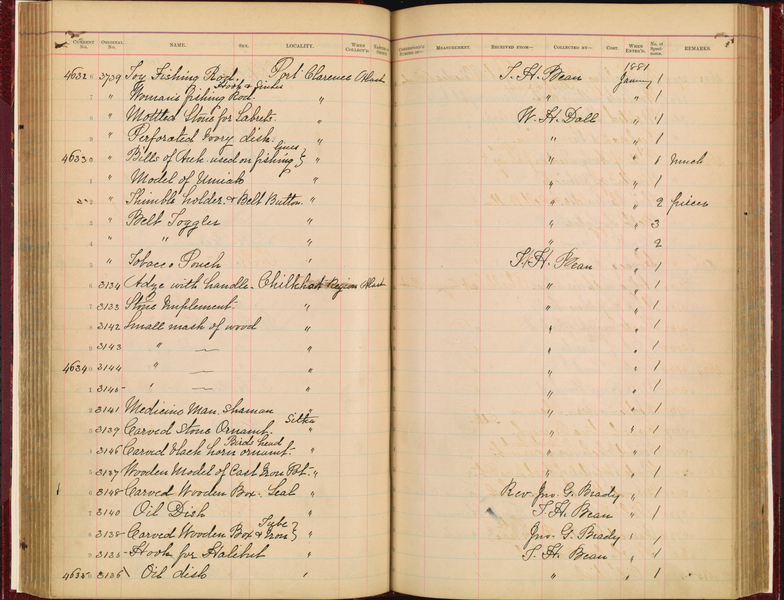 CURRENT No. ORIGINAL No. NAME. SEX. LOCALITY. WHEN COLLECT'D. MEASUREMENT. RECEIVED FROM— COLLECTED BY— COST. WHEN ENTER'D. No. of Specimens. REMARKS.
1881
46326 3739 Toy Fishing Rod. Port Clarence Alask T. H. Bean January 1
Hook & Sinker
7 " Woman's Fishing Rod. " " " 1
8 " Mottled Stone for Labrets. " W. H. Dall " 1
9 " Perforated Ivory disk. " " " 1
lines
46330 " Bills of Auk used on fishing } " " " 1 much
1 " Model of Umiak " " " 1
2 " Thimble holder & Belt Button. " " " 2 pieces
3 " Belt Toggles " " " 3
4 " " " " " 2
5 " Tobacco Pouch " T. H. Bean " 1
6 3134 Adze with handle. Chilkhat Region Alask " " 1
7 3133 Stone Implement. " " " 1
8 3142 Small mask of wood " " " 1
9 3143 " — " " " 1
46340 3144 " — " " " 1
1 3145 " — " " " 1
2 3141 Medicine Man. Shaman " " " 1
Sitka
3 3139 Carved Stone Ornamt. " " " 1
Birds head
4 3146 Carved black horn ornamt. " " " 1
5 3137 Wooden Model of Cast Iron Pot. " " " 1
6 3148 Carved Wooden Box. Seal " Rev Jno. G. Brady " 1
7 3140 Oil Dish " T. H. Bean " 1
Tube
8 3138 Carved Wooden Box & Iron } " Jno. G. Brady " 1
9 3135 Hook for Halibut " T. H. Bean " 1
46350 3136 Oil dish " " " 1